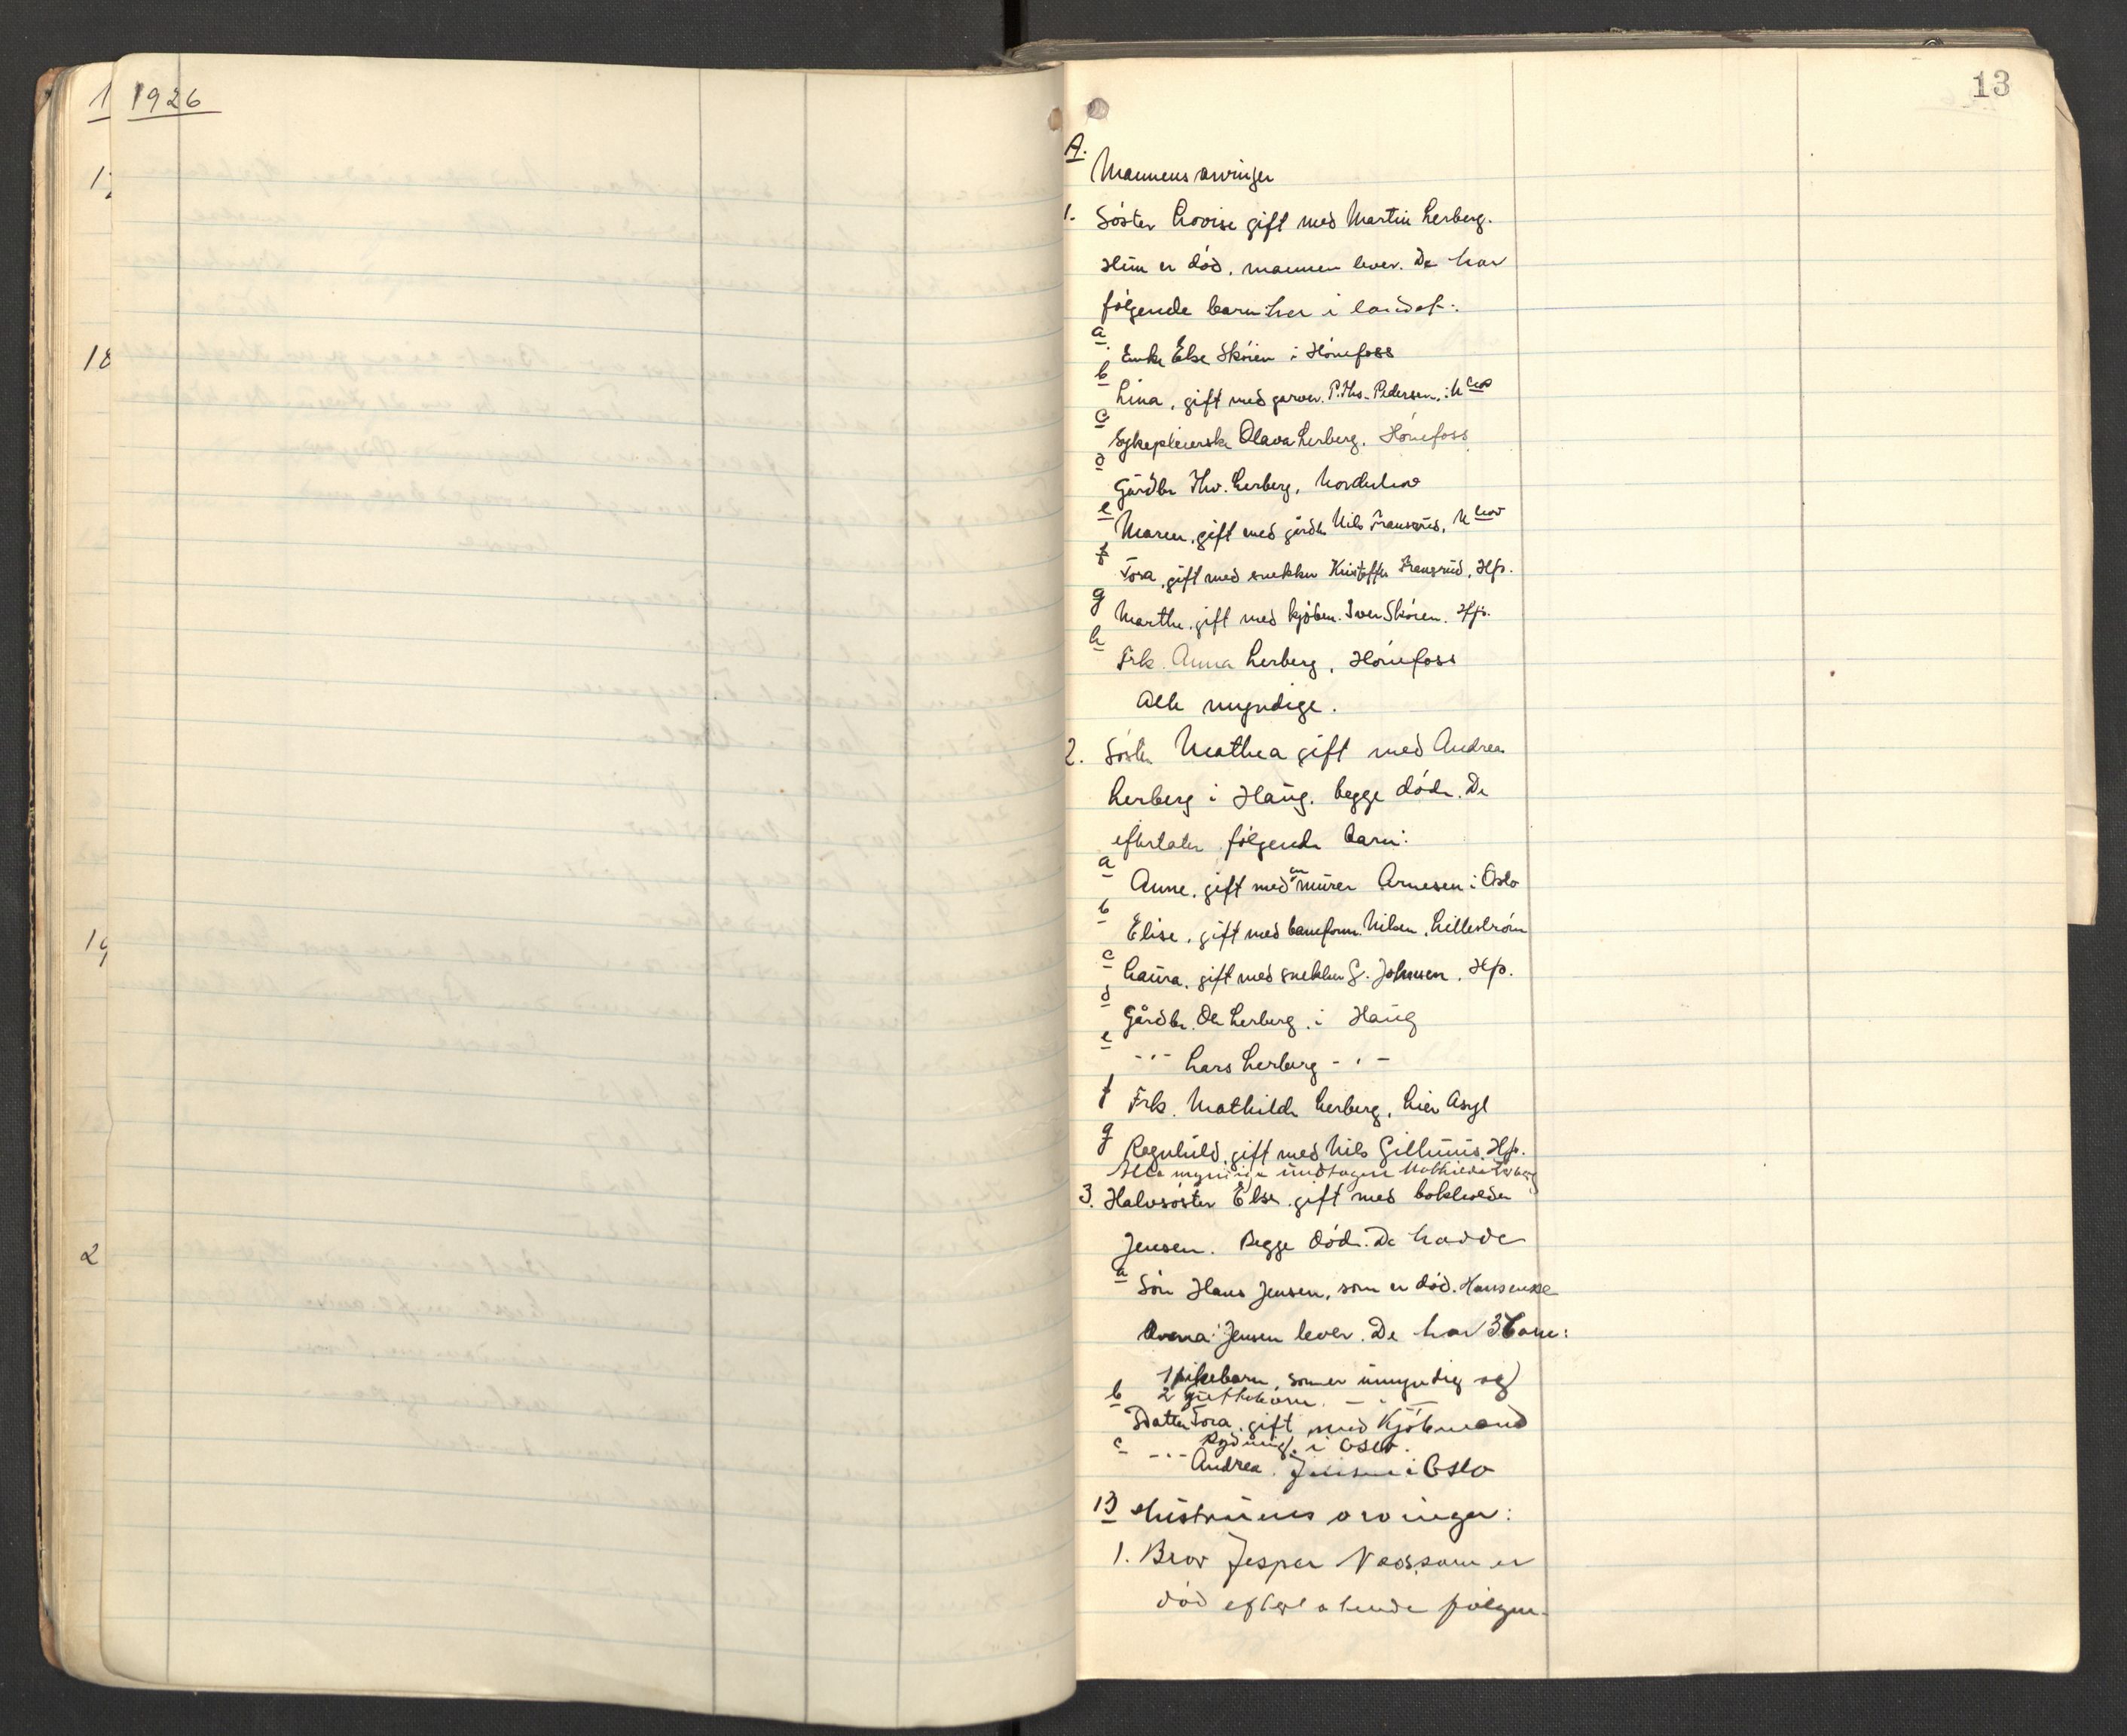 1 1926
17
18
19
2
13
A.
Mannens arvinger
1. Søster Lovise gift med Martin Lerberg.
Hun er død, mannen lever. De har
følgende barn her i landet:
a Enke Else Skøien i Hønefoss
b Lina, gift med garver P. Ths. Pedersen, i Nhov
c Sykepleierske Olava Lerberg, Hønefoss
d Gårdbr Thv. Lerberg, Norderhov
e Maren, gift med gårdb. Nils Framsrud, Nhov
f Tora, gift med snekker Kristoffer Hfs.
g Marthe, gift med kjøbm. Iver Skøien. Hfs.
h Frk. Anna Lerberg, Hønefoss
Alle myndige.
2. Søster Mathea gift med Andreas
Lerberg i Haug, begge døde. De
efterlater følgende barn:
a Anne, gift med en murer Arnesen i Oslo
b Elise, gift med baneform. Nilsen, Lillestrøm
c Laura, gift med snekker G. Johnsen, Hfs.
d Gårdbr. Ole Lerberg, i Haug
e -"- Lars Lerberg -"-
f Frk. Mathilde Lerberg, Lier Asyl
g Ragnhild, gift med Nils Gillhuus, Hfs.
Alle myndige undtagen Mathilde Lerberg
3. Halvsøster Else, gift med bokholder
Jensen. Begge døde. De hadde
a Søn Hans Jensen, som er død. Hans enke
Jensen lever. De har 3 barn:
1 pikebarn, som er umyndig og
2 guttebarn. -"-
b Datter Tora, gift med Kjøbmand
i Oslo.
c -"- Andrea Jensen i Oslo
B Hustruens arvinger:
1. Bror Jesper som er
død efterlatende følgen-